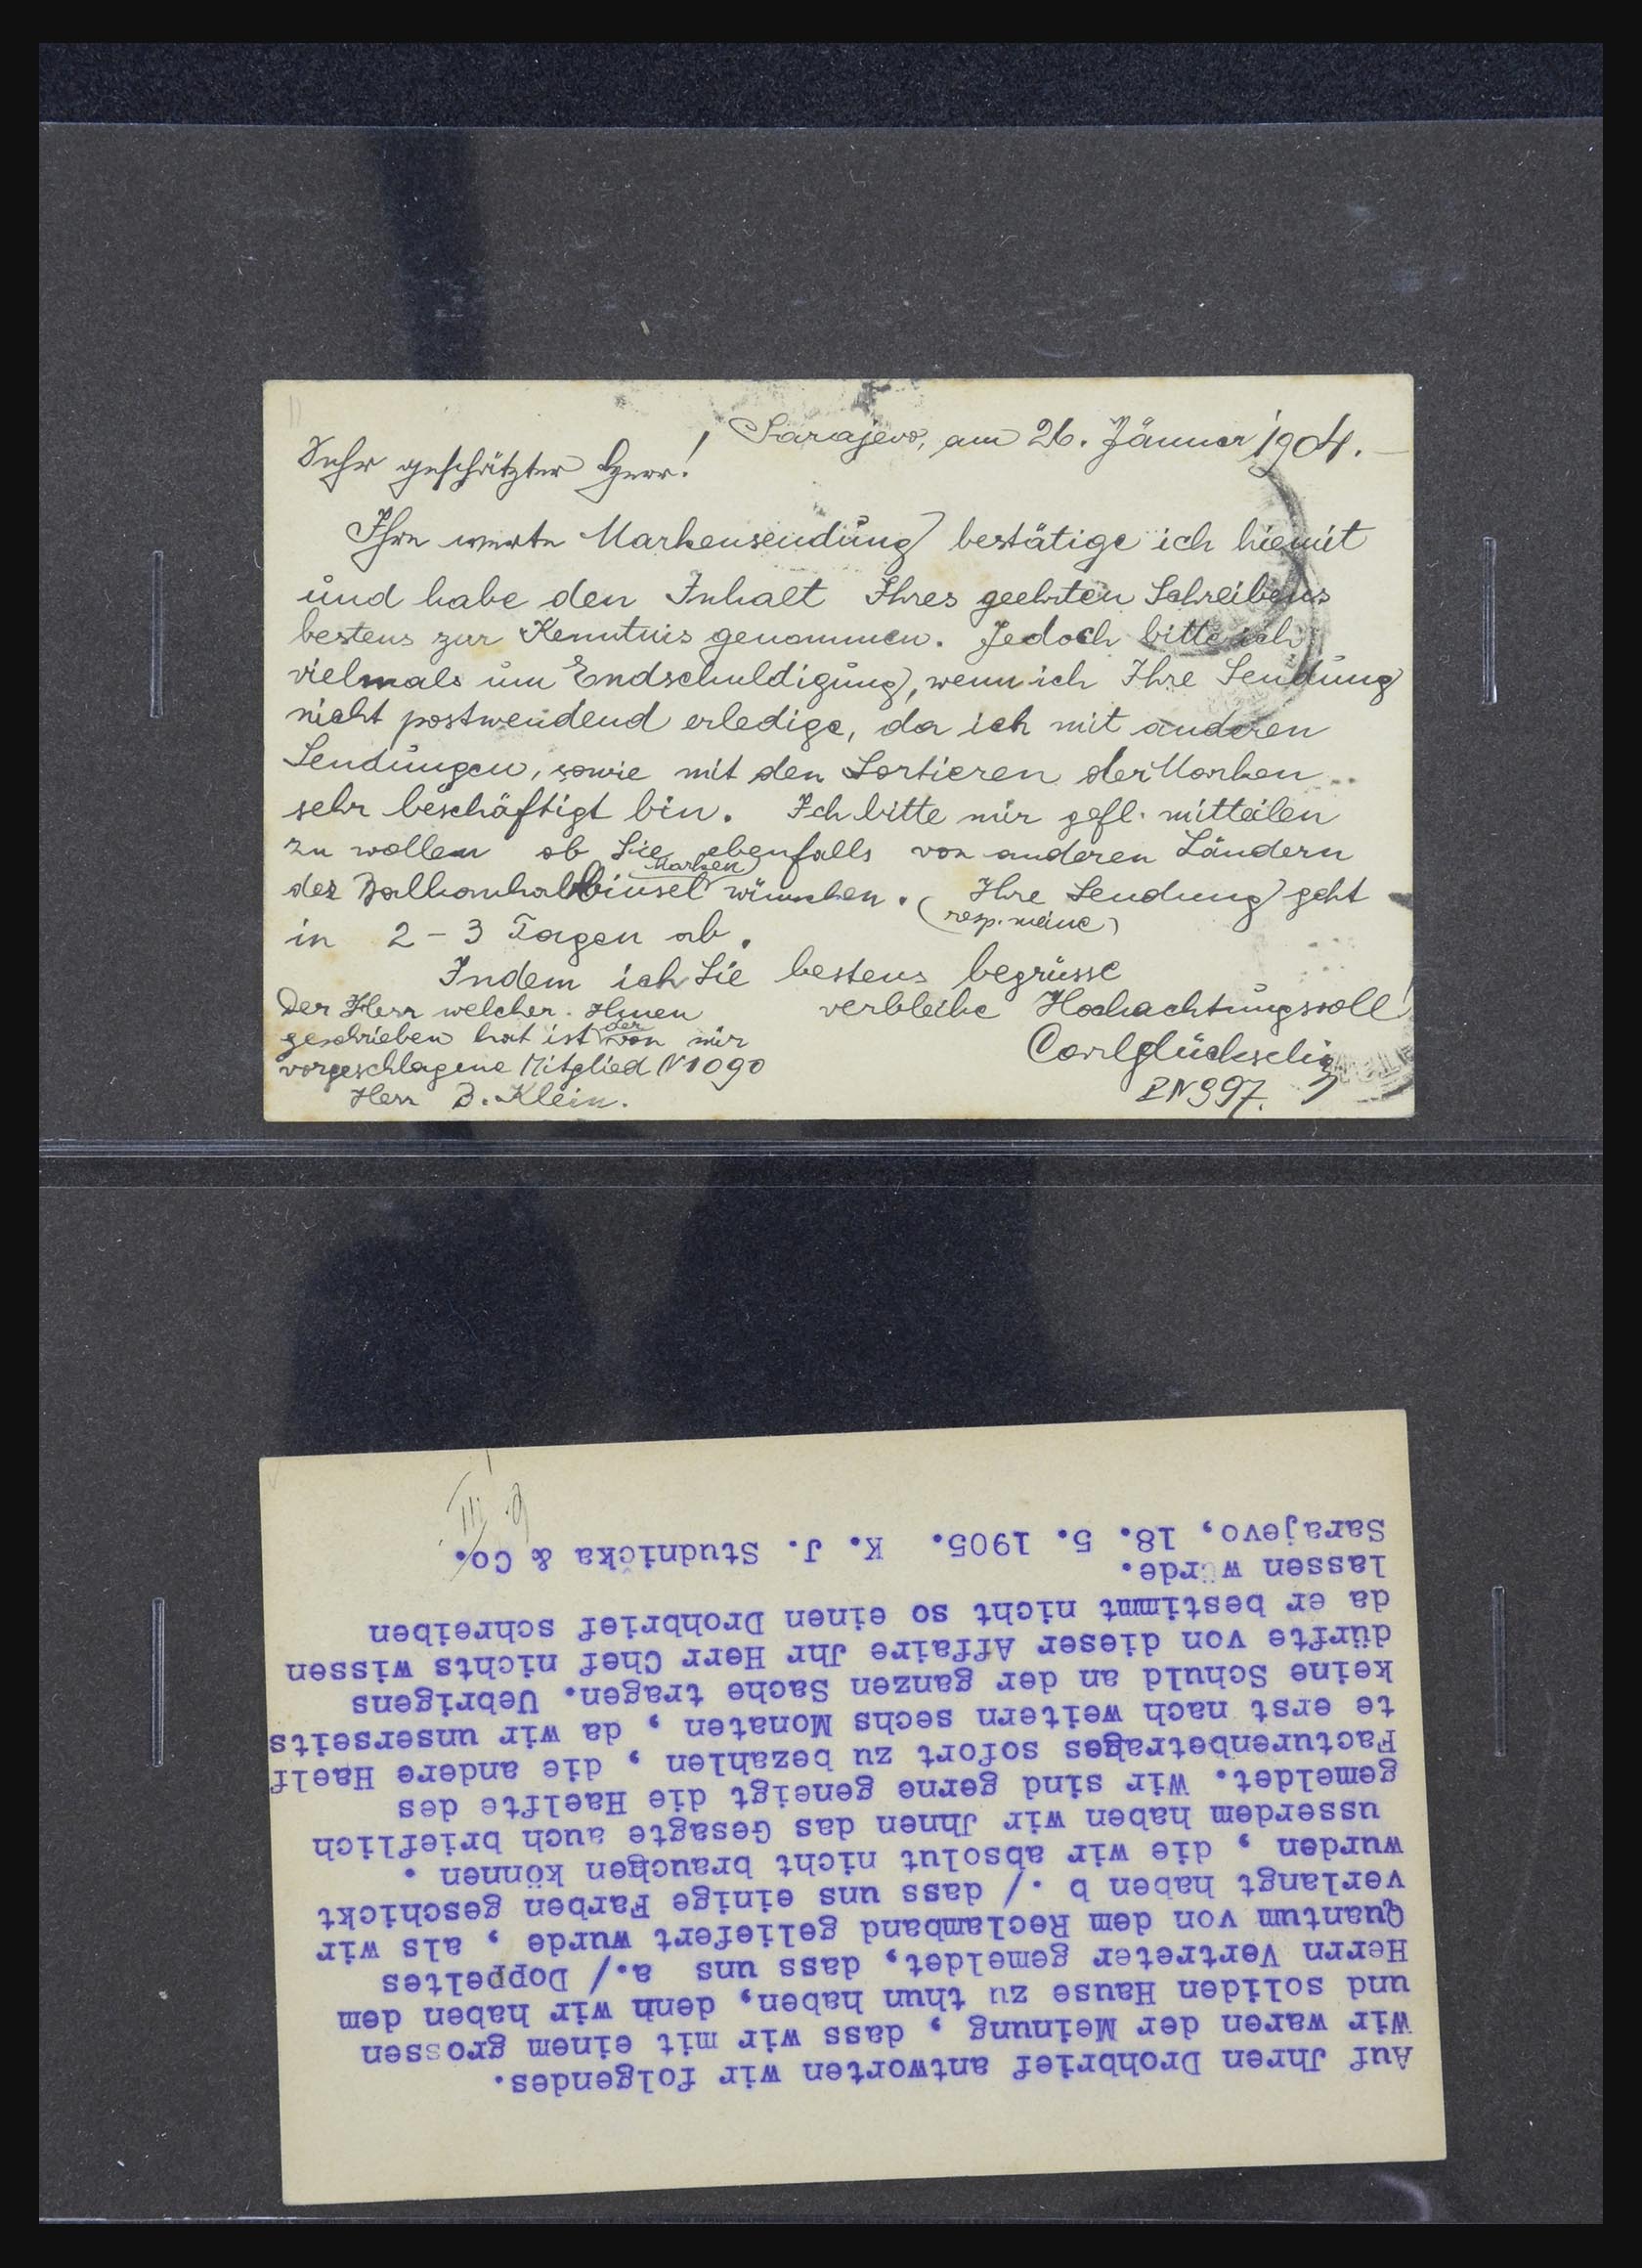 Sarajevo, am 26. Jänner 1904.
Sehr geschätzter Herr!
Ihre werte Markensendung bestätige ich hiemit
und habe den Inhalt Ihres geehrten Schreibens
bestens zur Kenntnis genommen. Jedoch bitte ich
vielmals um Endschuldigung, wenn ich Ihre Sendung
nicht postwendend erledige, da ich mit anderen
Sendungen, sowie mit den Sortieren der Marken
sehr beschäftigt bin. Ich bitte mir gefl. mitteilen
zu wollen ob Sie ebenfalls von anderen Ländern
der Balkanhalbinsel Marken wünschen. Ihre Sendung geht
(resp. meine)
in 2-3 Tagen ab.
Indem ich Sie bestens begrüsse
verbleibe Hochachtungsvoll!
Carl Glückselig
LN 997.
Der Herr welcher Ihnen
geschrieben hat ist der von mir
vorgeschlagene Mitglied N 1090
Herr B. Klein.
Auf Jhren Drohbrief antworten wir folgendes.
Wir waren der Meinung , dass wir mit einem grossen
und soliden Hause zu thun haben, denn wir haben dem
Herrn Vertreter gemeldet, dass uns a./ Doppeltes
Quantum von dem Reclamband geliefert wurde , als wir
verlangt haben b ./ dass uns einige Farben geschickt
wurden , die wir absolut nicht brauchen können .
usserdem haben wir Jhnen das Gesagte auch brieflich
gemeldet. Wir sind gerne geneigt die Haelfte des
Facturenbetrages sofort zu bezahlen , die andere Haelf
te erst nach weitern sechs Monaten , da wir unserseits
keine Schuld an der ganzen Sache tragen. Uebrigens
dürfte von dieser Affaire Jhr Herr Chef nichts wissen
da er bestimmt nicht so einen Drohbrief schreiben
lassen würde.
Sarajevo, 18. 5. 1905. K. J. Studnička & Co.